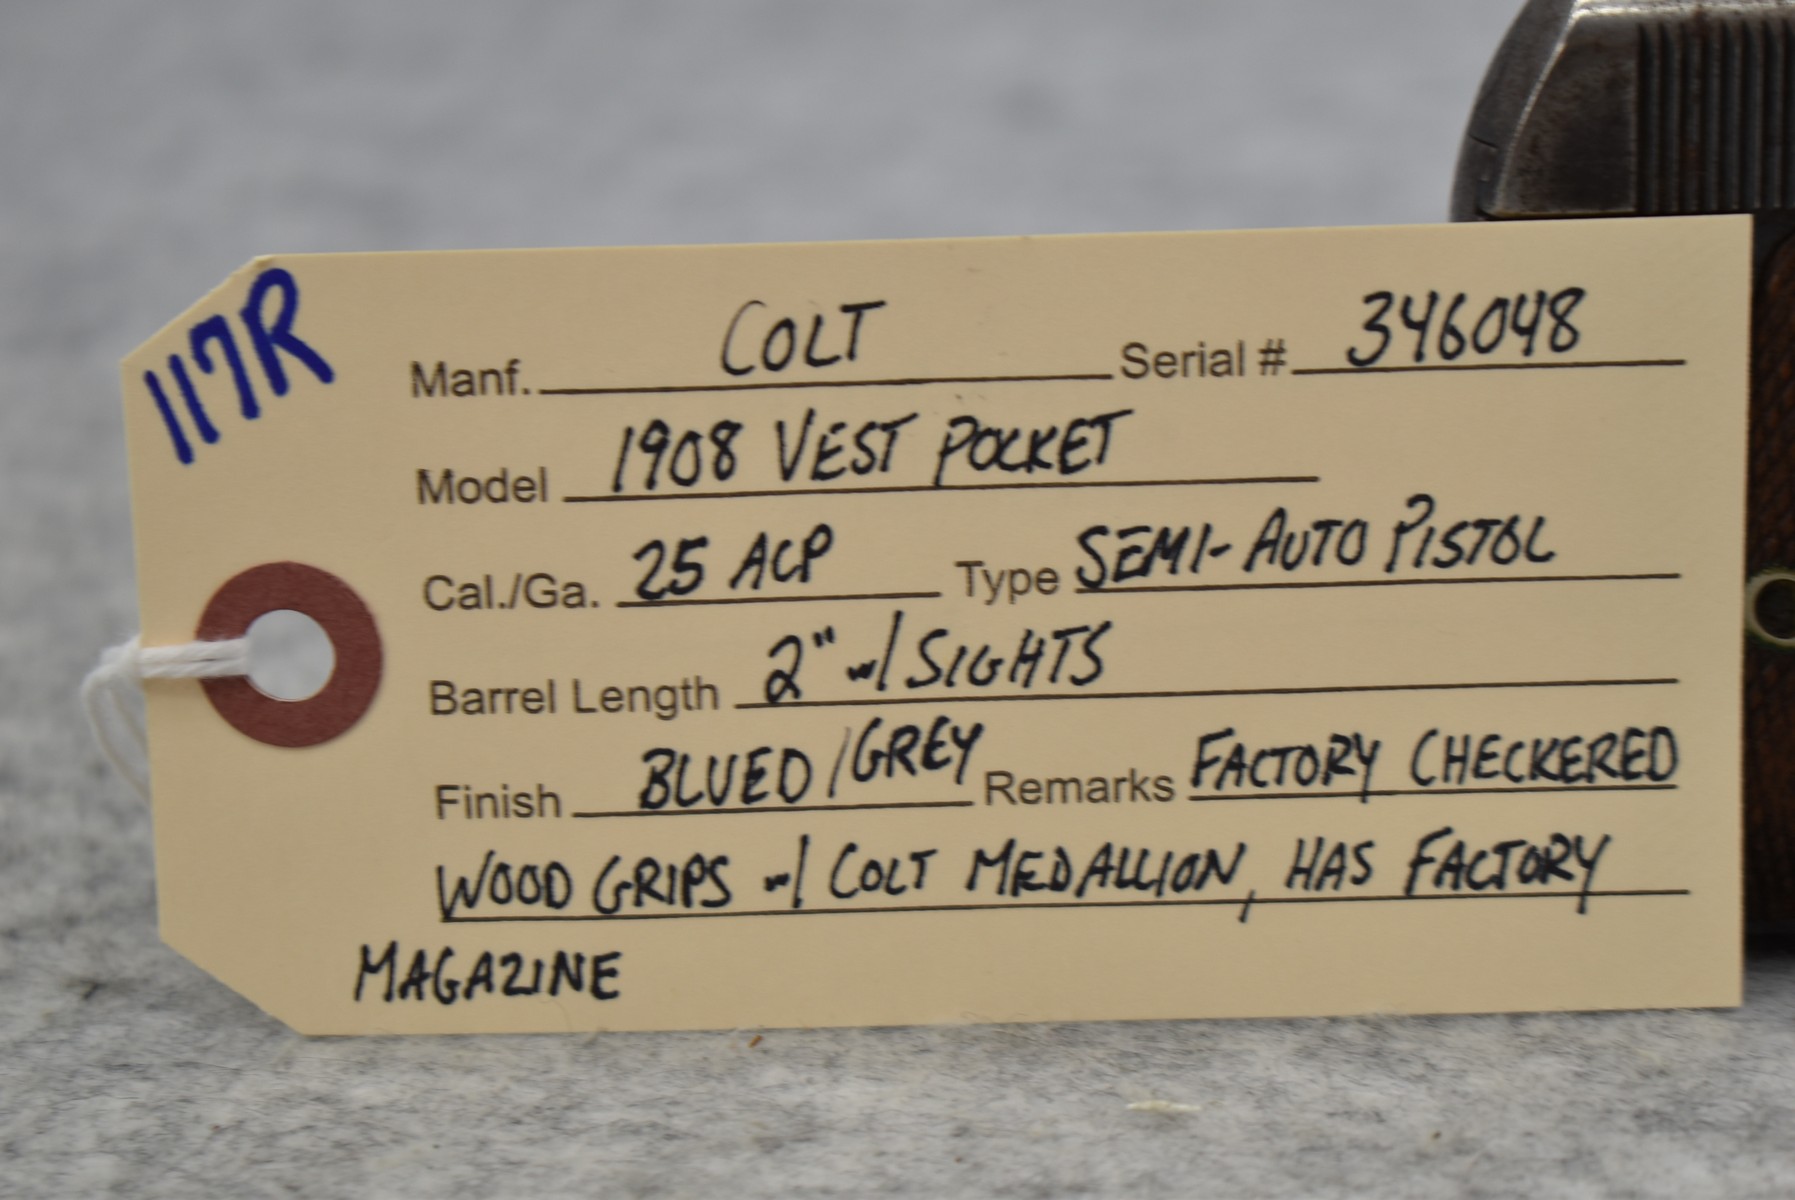 117R
Manf. COLT Serial # 346048
Model 1908 VEST POCKET
Cal./Ga. 25 ACP Type SEMI-AUTO PISTOL
Barrel Length 2" w/ SIGHTS
Finish BLUED/GREY Remarks FACTORY CHECKERED
WOOD GRIPS w/ COLT MEDALLION, HAS FACTORY
MAGAZINE